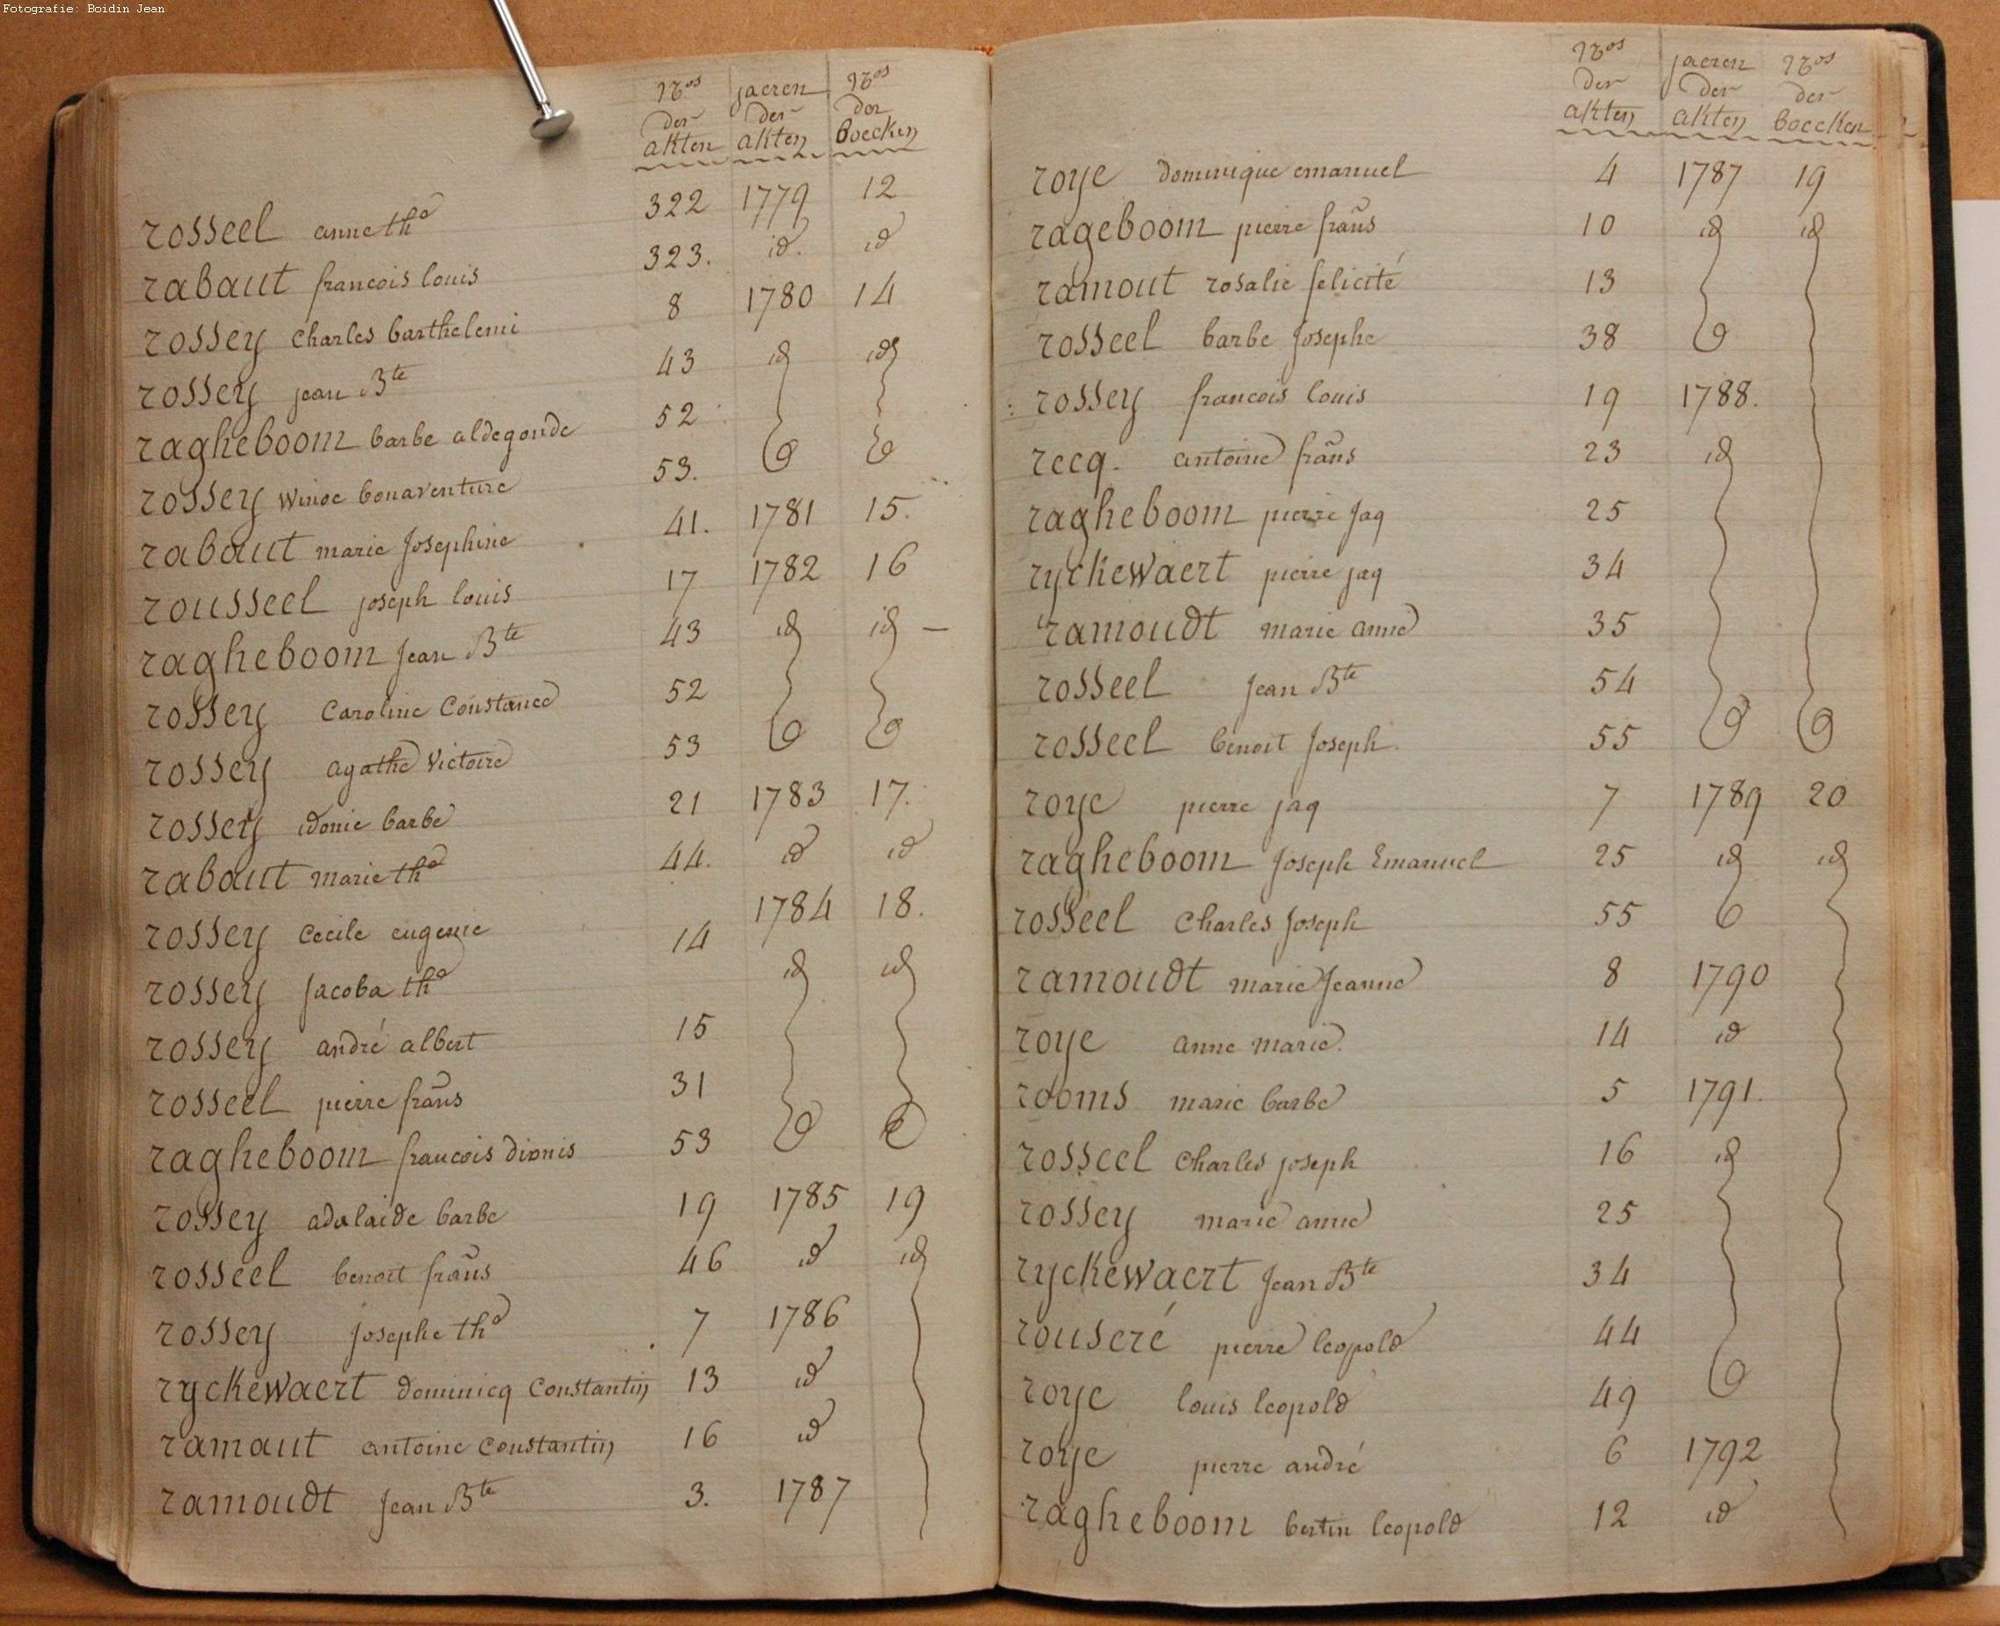 Fotografie: Boidin Jean
Nros der akten jaeren der akten Nros der boecken
rosseel anne the 322 1779 12
rabaut francois louis 323. id. id
rossey charles barthelemi 8 1780 14
rossey jean Bte 43 id id
ragheboom barbe aldegonde 52
rossey winoc bonaventure 53.
rabaut marie Josephine 41. 1781 15.
rousseel joseph louis 17 1782 16
ragheboom Jean Bte 43 id id –
rossey Caroline Constance 52
rossey agathe victoire 53
rossey idonie barbe 21 1783 17.
rabaut marie the 44. id id
rossey cecile eugenie 14 1784 18.
rossey Jacoba the id id
rossey andré albert 15
rosseel pierre frans 31
ragheboom francois dionis 53
rossey adelaide barbe 19 1785 19
rosseel benoit frans 46 id id
rossey josephe the 7 1786
ryckewaert dominicq Constantin 13 id
ramaut antoine Constantin 16 id
ramoudt Jean Bte 3. 1787
Nros der akten jaeren der akten Nros der boecken
roye dominique emanuel 4 1787 19
rageboom pierre frans 10 id id
ramout rosalie felicité 13
rosseel barbe Josephe 38
rossey francois louis 19 1788.
recq. antoine frans 23 id
ragheboom pierre Jaq 25
ryckewaert pierre jaq 34
ramoudt marie anne 35
rosseel Jean Bte 54
rosseel benoit Joseph 55
roye pierre jaq 7 1789 20
ragheboom Joseph Emanuel 25 id id
rosseel Charles Joseph 55
ramoudt marie Jeanne 8 1790
roye anne marie. 14 id
rooms marie barbe 5 1791.
rosseel Charles joseph 16 id
rossey marie anne 25
ryckewaert Jean Bte 34
rouseré pierre leopold 44
roye louis leopold 49
roye pierre andré 6 1792
ragheboom bertin leopold 12 id